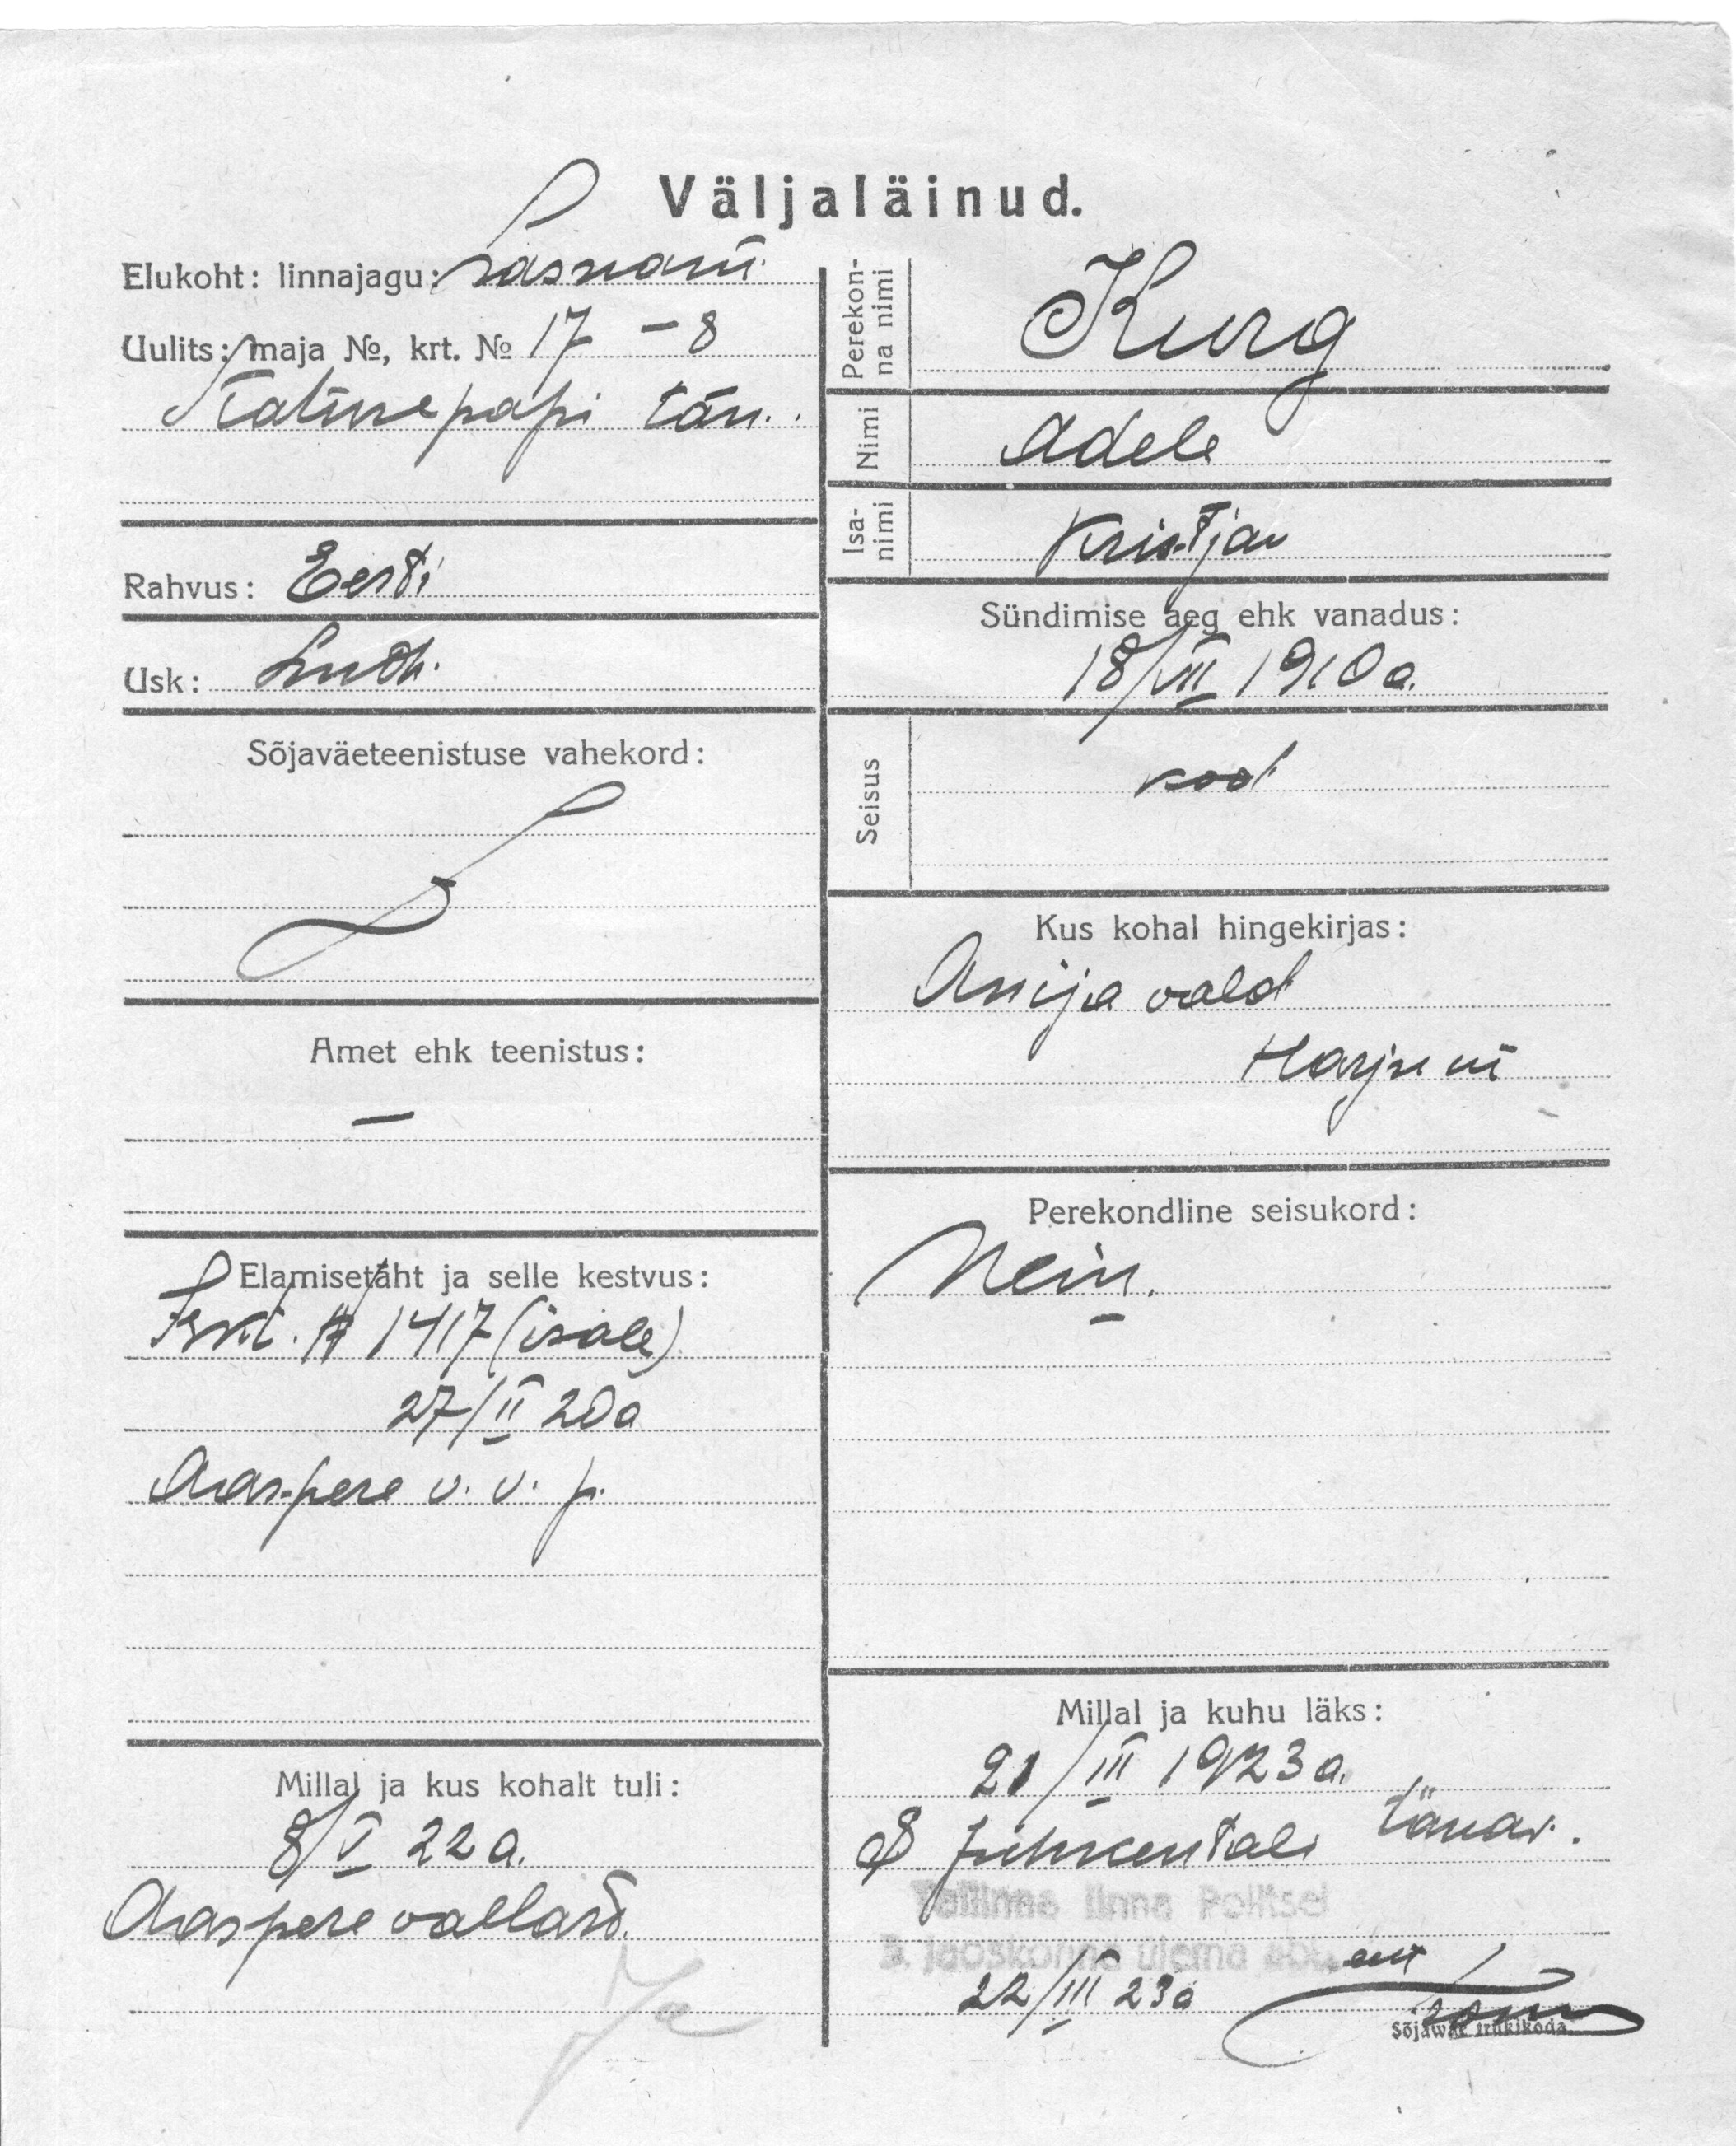 Väljaläinud.
Elukoht: linnajagu: Lasnam.
Uulits: maja №, krt. № 17 – 8
tän.
Rahvus: Eesti
Usk: Luth.
Sõjaväeteenistuse vahekord:
Amet ehk teenistus:
–
Elamisetäht ja selle kestvus:
№ 1417 (isale)
27/II 20a
Aaspere v. v. p.
Millal ja kus kohalt tuli:
8/V 22a.
Aaspere vallast.
Perekonna nimi Kurg
Nimi Adele
Isanimi Kristjan
Sündimise aeg ehk vanadus:
18/VII 1910a.
Seisus kod
Kus kohal hingekirjas:
Anija vald
Harju m
Perekondline seisukord:
Nein.
Millal ja kuhu läks:
21/III 1923a.
Juhkentali tänav.
Tallinna linna Politsei
3. jaoskonna ülema abi
22/III 23a
Sõjawäe trükikoda.